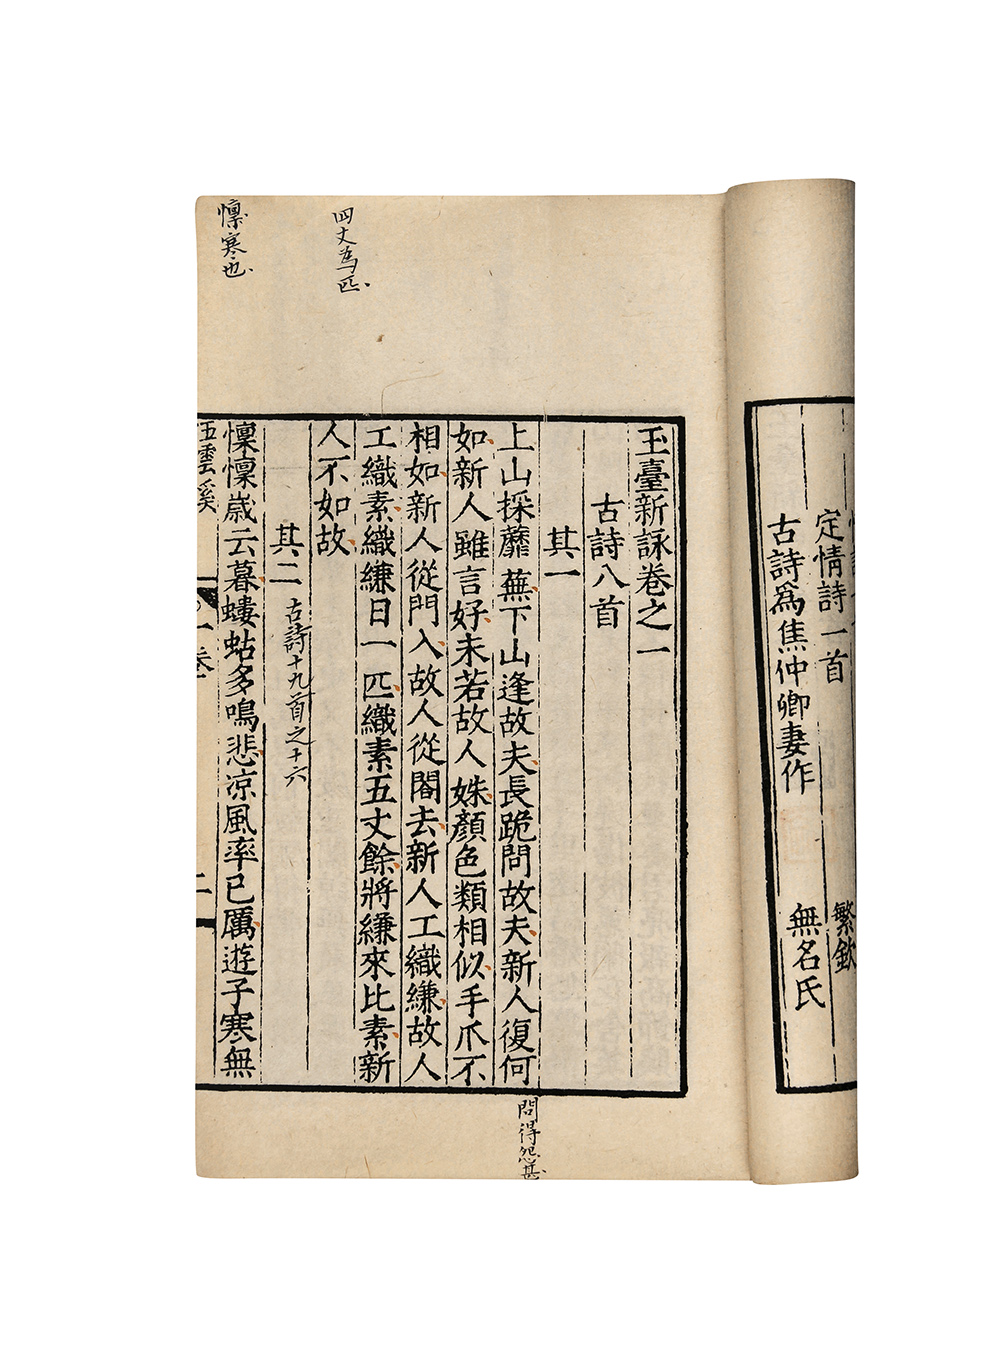 定情詩一首 繁欽
古詩爲焦仲卿妻作 無名氏
玉臺新詠卷之一
古詩八首
其一
上山採蘼蕪下山逢故夫長跪問故夫新人復何
如新人雖言好未若故人姝顏色類相似手爪不
相如新人從門入故人從閤去新人工織縑故人
工織素織縑日一匹織素五丈餘將縑來比素新
人不如故
其二 古詩十九首之十六
懍懍歲云暮螻蛄多鳴悲凉風率已厲遊子寒無
五雲溪
一卷
二
問得怨甚
四丈為匹
懔寒也